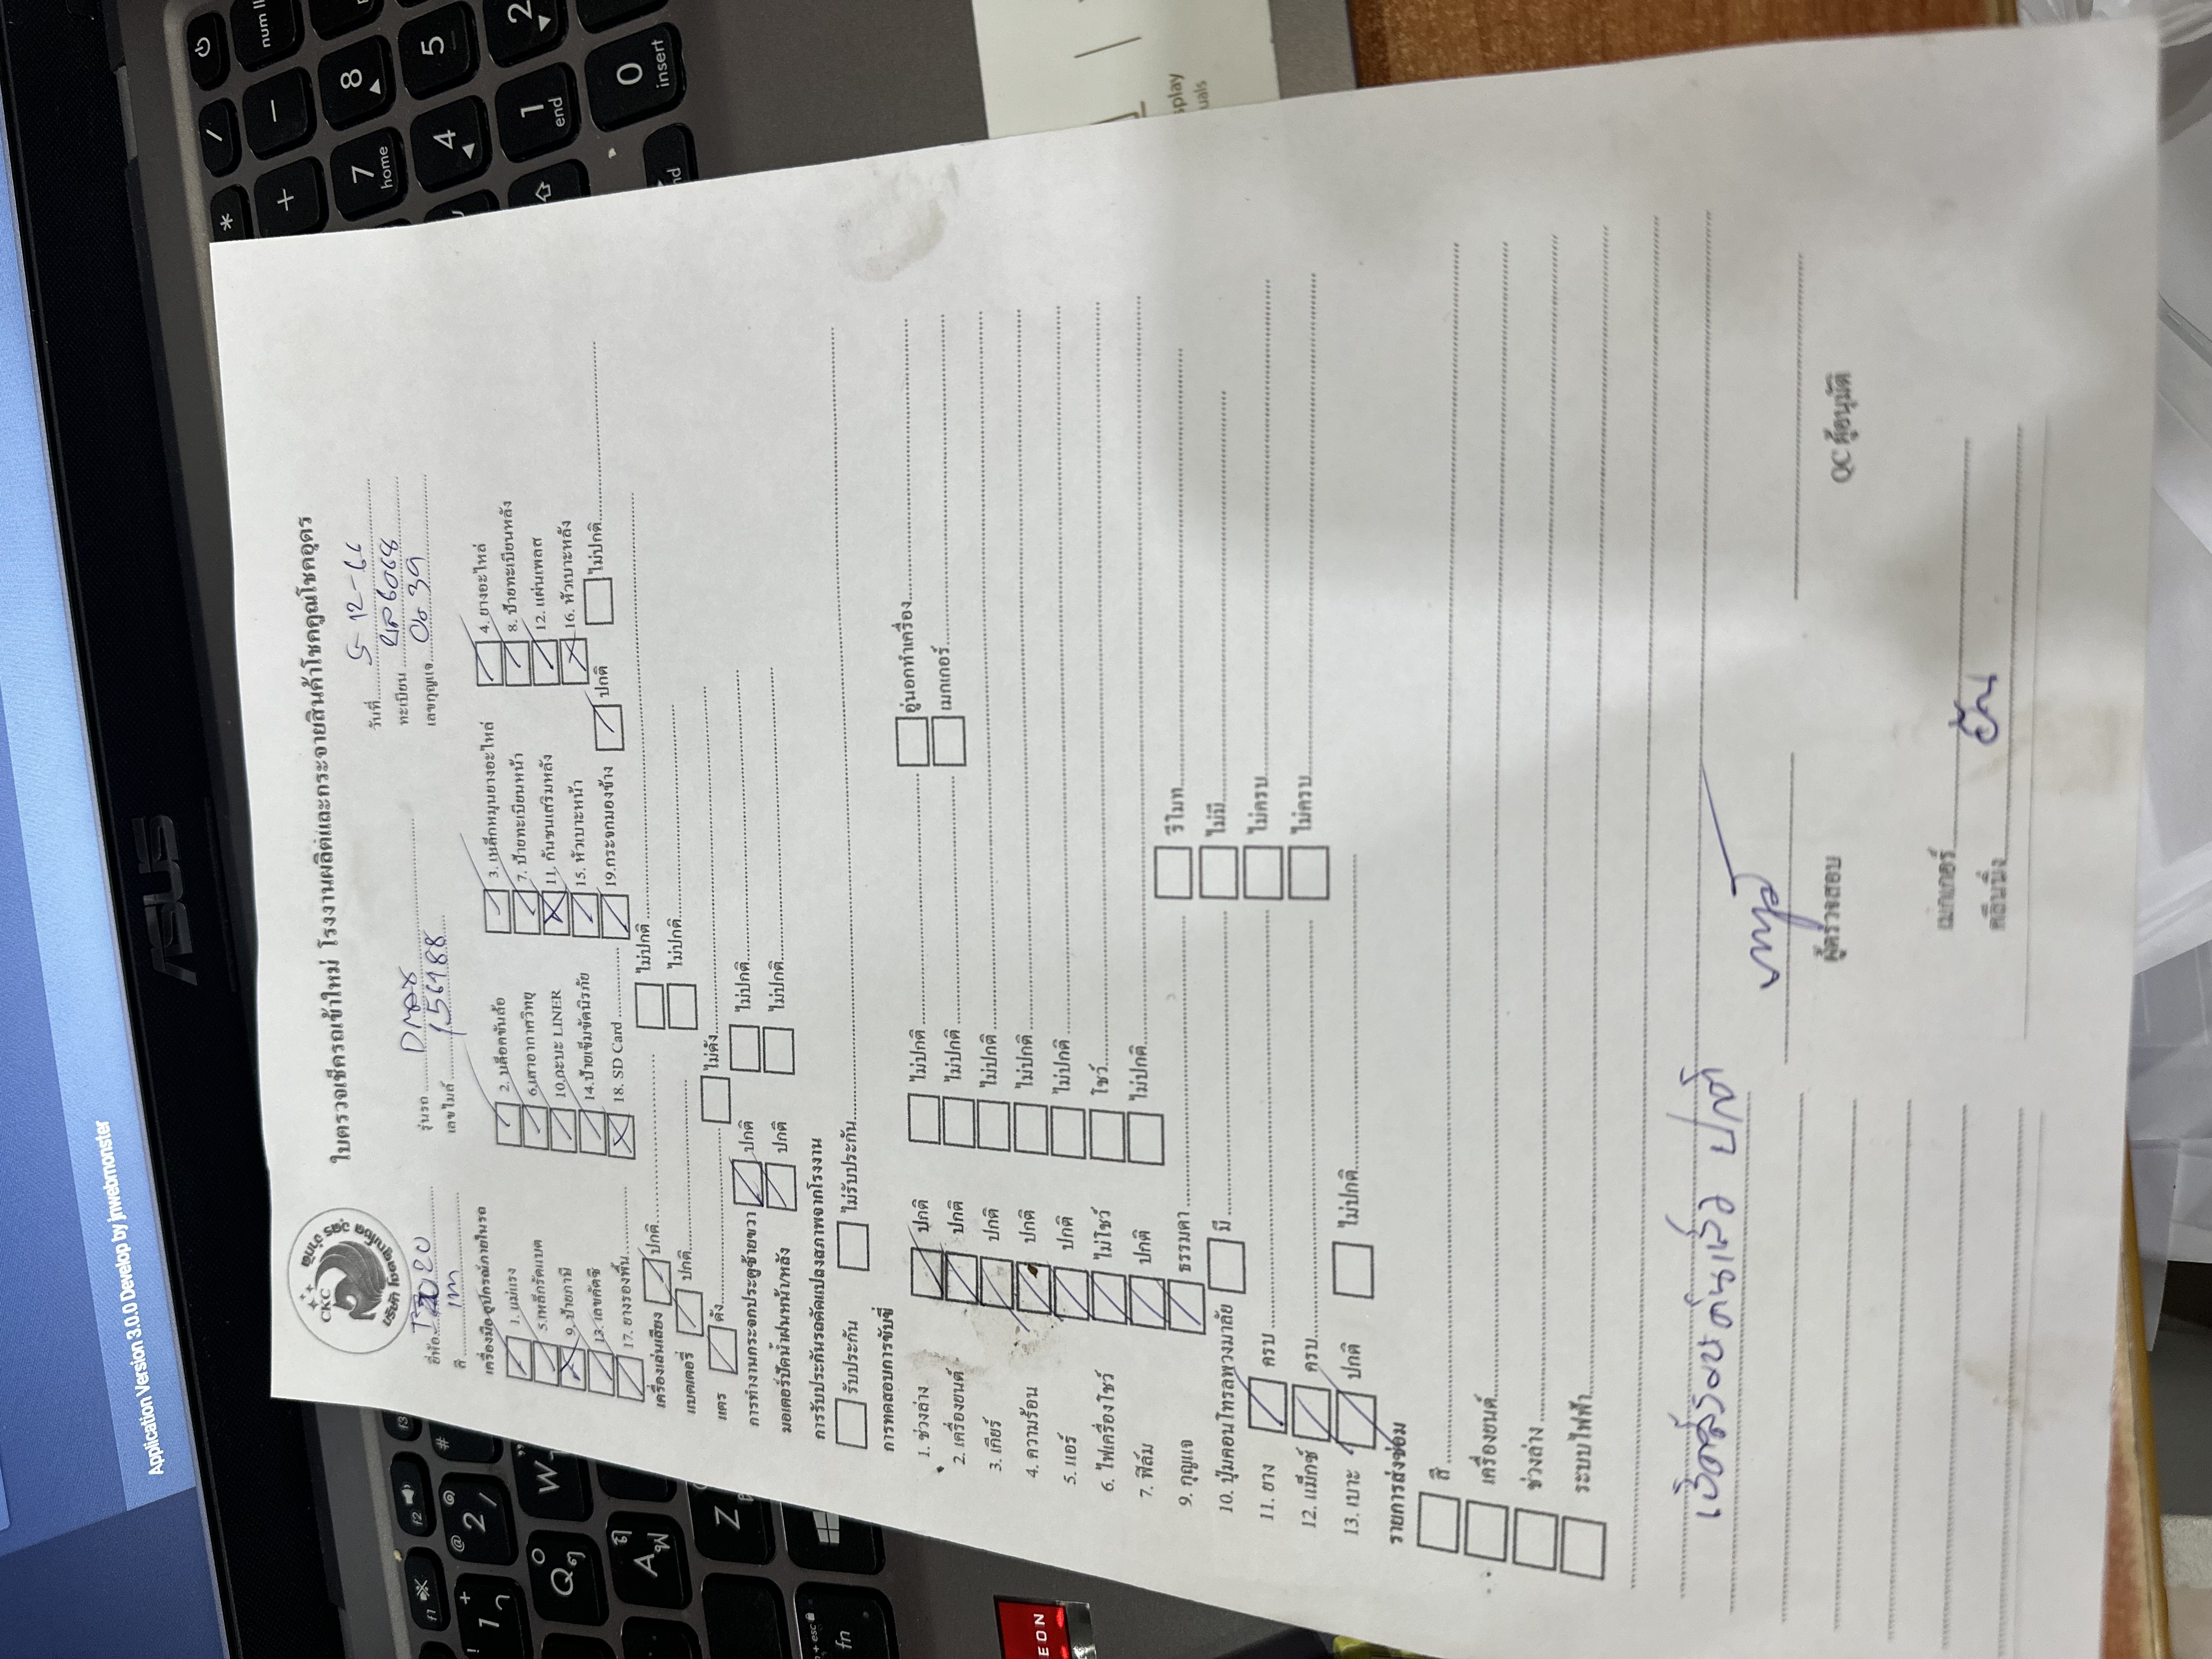 Application Version 3.0.0 Develop by jnwebmonster
ASUS
CKC
ใบตรวจเช็ครถเข้าใหม่ โรงงานผลิตและกระจายสินค้าโชคคูณโชคอุดร
วันที่ 5-12-66
ยี่ห้อ รุ่นรถ ทะเบียน 6068
สี เทา เลขไมล์ 156988 เลขกุญแจ 39
เครื่องมือ อุปกรณ์ภายในรถ
1. แม่แรง 2. บล็อคขันล้อ 3. เหล็กหมุนยางอะไหล่ 4. ยางอะไหล่
5. เหล็กรัดแบต 6. เสาอากาศวิทยุ 7. ป้ายทะเบียนหน้า 8. ป้ายทะเบียนหลัง
9. ป้ายภาษี 10. กะบะ LINER 11. กันชนเสริมหลัง 12. แผ่นเพลส
13. เลขคัตซี 14. ป้ายเข็มขัดนิรภัย 15. หัวเบาะหน้า 16. หัวเบาะหลัง
17. ยางรองพื้น 18. SD Card 19. กระจกมองข้าง ปกติ ไม่ปกติ
เครื่องเล่นเสียง ปกติ ไม่ปกติ
แบตเตอรี่ ปกติ ไม่ปกติ
แตร ดัง ไม่ดัง
การทำงานกระจกประตูซ้ายขวา ปกติ ไม่ปกติ
มอเตอร์ปัดน้ำฝนหน้า/หลัง ปกติ ไม่ปกติ
การรับประกันรถดัดแปลงสภาพจากโรงงาน
รับประกัน ไม่รับประกัน
การทดสอบการขับขี่
1. ช่วงล่าง ปกติ ไม่ปกติ อู่นอกทำเครื่อง
2. เครื่องยนต์ ปกติ ไม่ปกติ เมกเกอร์
3. เกียร์ ปกติ ไม่ปกติ
4. ความร้อน ปกติ ไม่ปกติ
5. แอร์ ปกติ ไม่ปกติ
6. ไฟเครื่องโชว์ ไม่โชว์ โชว์
7. ฟิล์ม ปกติ ไม่ปกติ
9. กุญแจ ธรรมดา รีโมท
10. ปุ่มคอนโทรลพวงมาลัย มี ไม่มี
11. ยาง ครบ ไม่ครบ
12. แม็กซ์ ครบ ไม่ครบ
13. เบาะ ปกติ ไม่ปกติ
รายการส่งซ่อม
สี
เครื่องยนต์
ช่วงล่าง
ระบบไฟฟ้า
ปกติ
ผู้ตรวจสอบ QC ผู้อนุมัติ
เมกเกอร์
คลีนนิ่ง